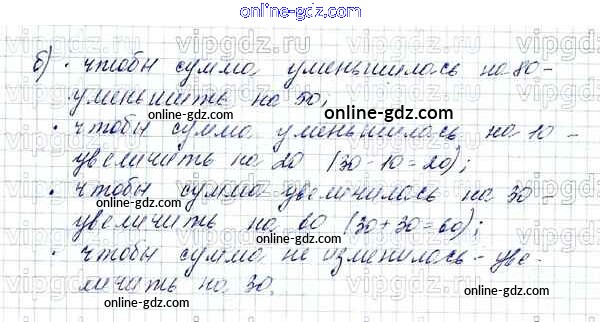 online-gdz.com
б) · чтобы сумма уменьшилась на 80 –
уменьшить на 50;
online-gdz.com
· чтобы сумма уменьшилась на 10 –
увеличить на 20 (30 - 10 = 20);
· чтобы сумма увеличилась на 30 –
увеличить на 60 (30 + 30 = 60);
online-gdz.com
· чтобы сумма не изменилась - уве-
личить на 30.
online-gdz.com
online-gdz.com